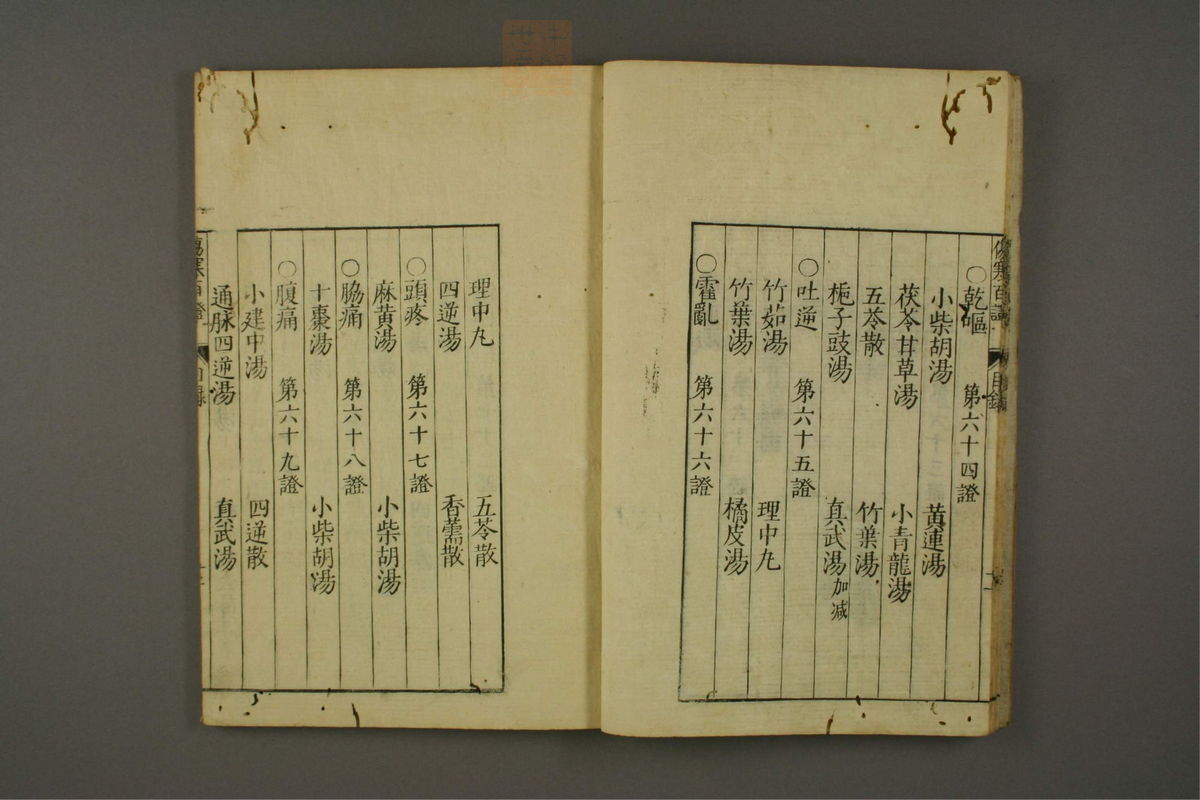 傷寒百證 目錄
〇乾嘔 第六十四證
小柴胡湯 黃連湯
茯苓甘草湯 小青龍湯
五苓散 竹葉湯
梔子豉湯 真武湯加减
〇吐逆 第六十五證
竹茹湯 理中丸
竹葉湯 橘皮湯
〇霍亂 第六十六證
理中丸 五苓散
四逆湯 香薷散
〇頭疼 第六十七證
麻黄湯 小柴胡湯
十棗湯 小柴胡湯
〇脇痛 第六十八證
〇腹痛 第六十九證
小建中湯 四逆散
通脉四逆湯 真武湯
傷寒百證 目錄